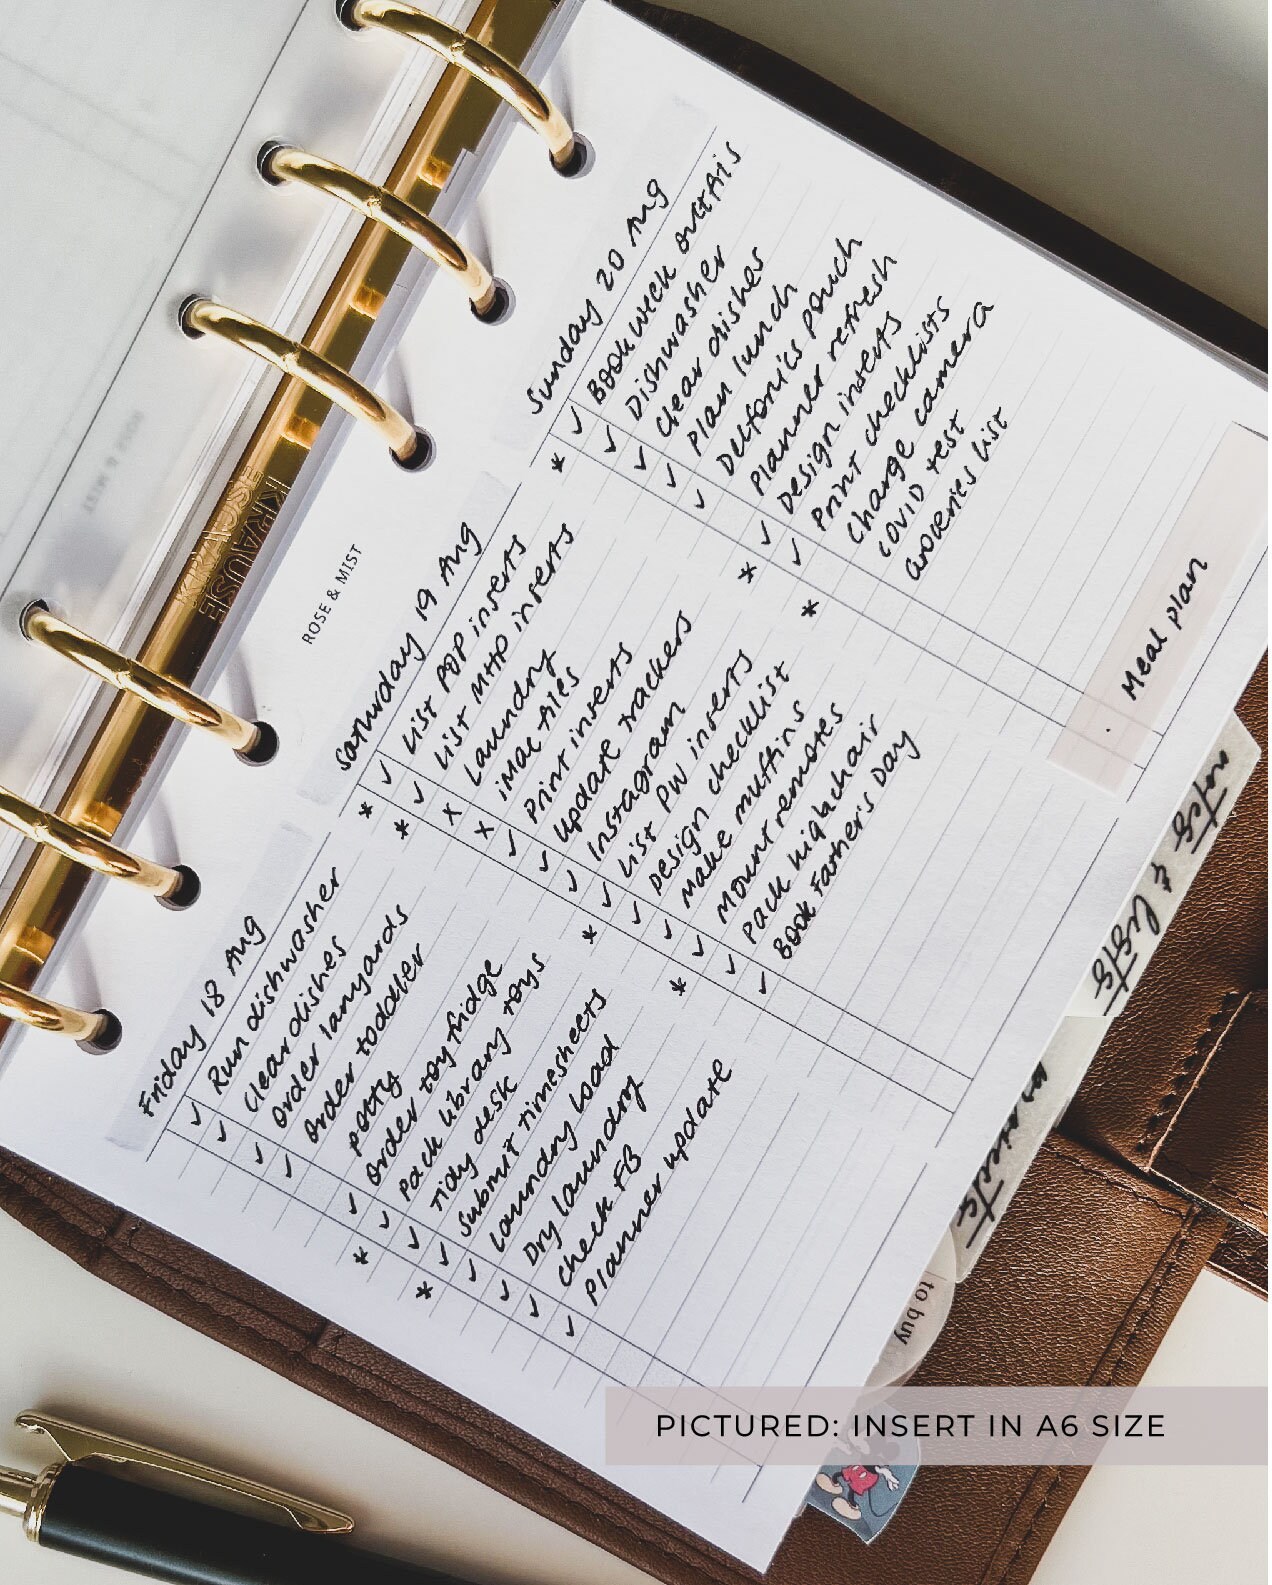 Friday 18 Aug
✓ Run dishwasher
✓ Clear dishes
✓ Order lanyards
✓ Order toddler
potty
✓ Order toy fridge
* ✓ Pack library toys
✓ Tidy desk
* ✓ Submit timesheets
✓ Laundry load
✓ Dry laundry
✓ Check FB
✓ Planner update
Saturday 19 Aug
* ✓ List POP inserts
* ✓ List MHP inserts
x Laundry
x iMac files
✓ Print inserts
✓ Update trackers
✓ Instagram
* ✓ List PW inserts
✓ Design checklist
✓ Make muffins
* ✓ Mount remotes
✓ Pack highchair
✓ Book Father's Day
Sunday 20 Aug
* ✓ Bookweek outfits
✓ Dishwasher
✓ Clear dishes
✓ Plan lunch
✓ Delfonics pouch
Planner refresh
* ✓ Design inserts
✓ Print checklists
* Charge camera
COVID test
Groceries list
Meal plan
ROSE & MIST
KRAUSE
notes & lists
to buy
PICTURED: INSERT IN A6 SIZE